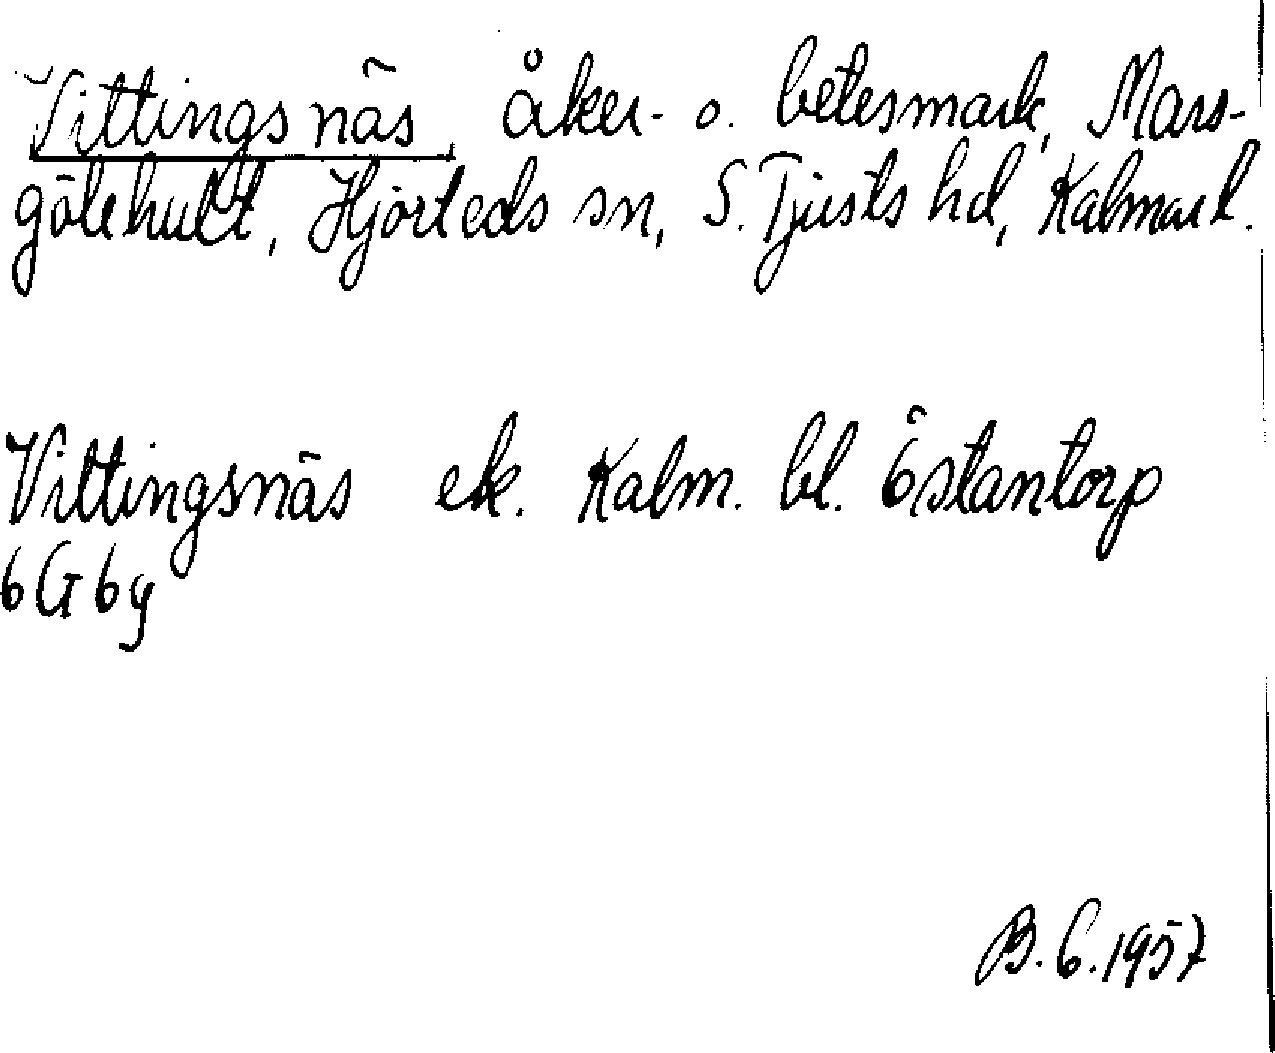 Vittingsnäs, åker- o. betesmark, Mars-
götehult, Hjorteds sn, S. Tjusts hd, Kalmar l.
Vittingsnäs ek. Kalm. bl. Östantorp
6G 6g
B.G.1957